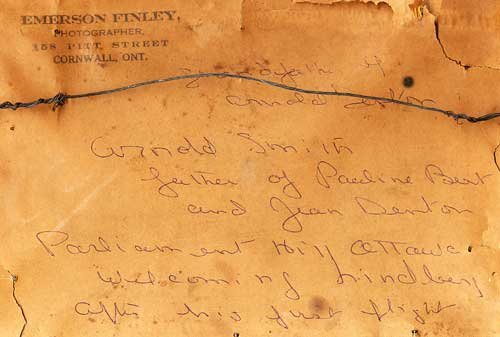 EMERSON FINLEY,
PHOTOGRAPHER,
158 PITT, STREET
CORNWALL, ONT.
of
Arnold Denton
Arnold Smith
father of Pauline Bert
and Jean Denton
Parliament Hill Ottawa
welcoming Lindberg
after his first flight